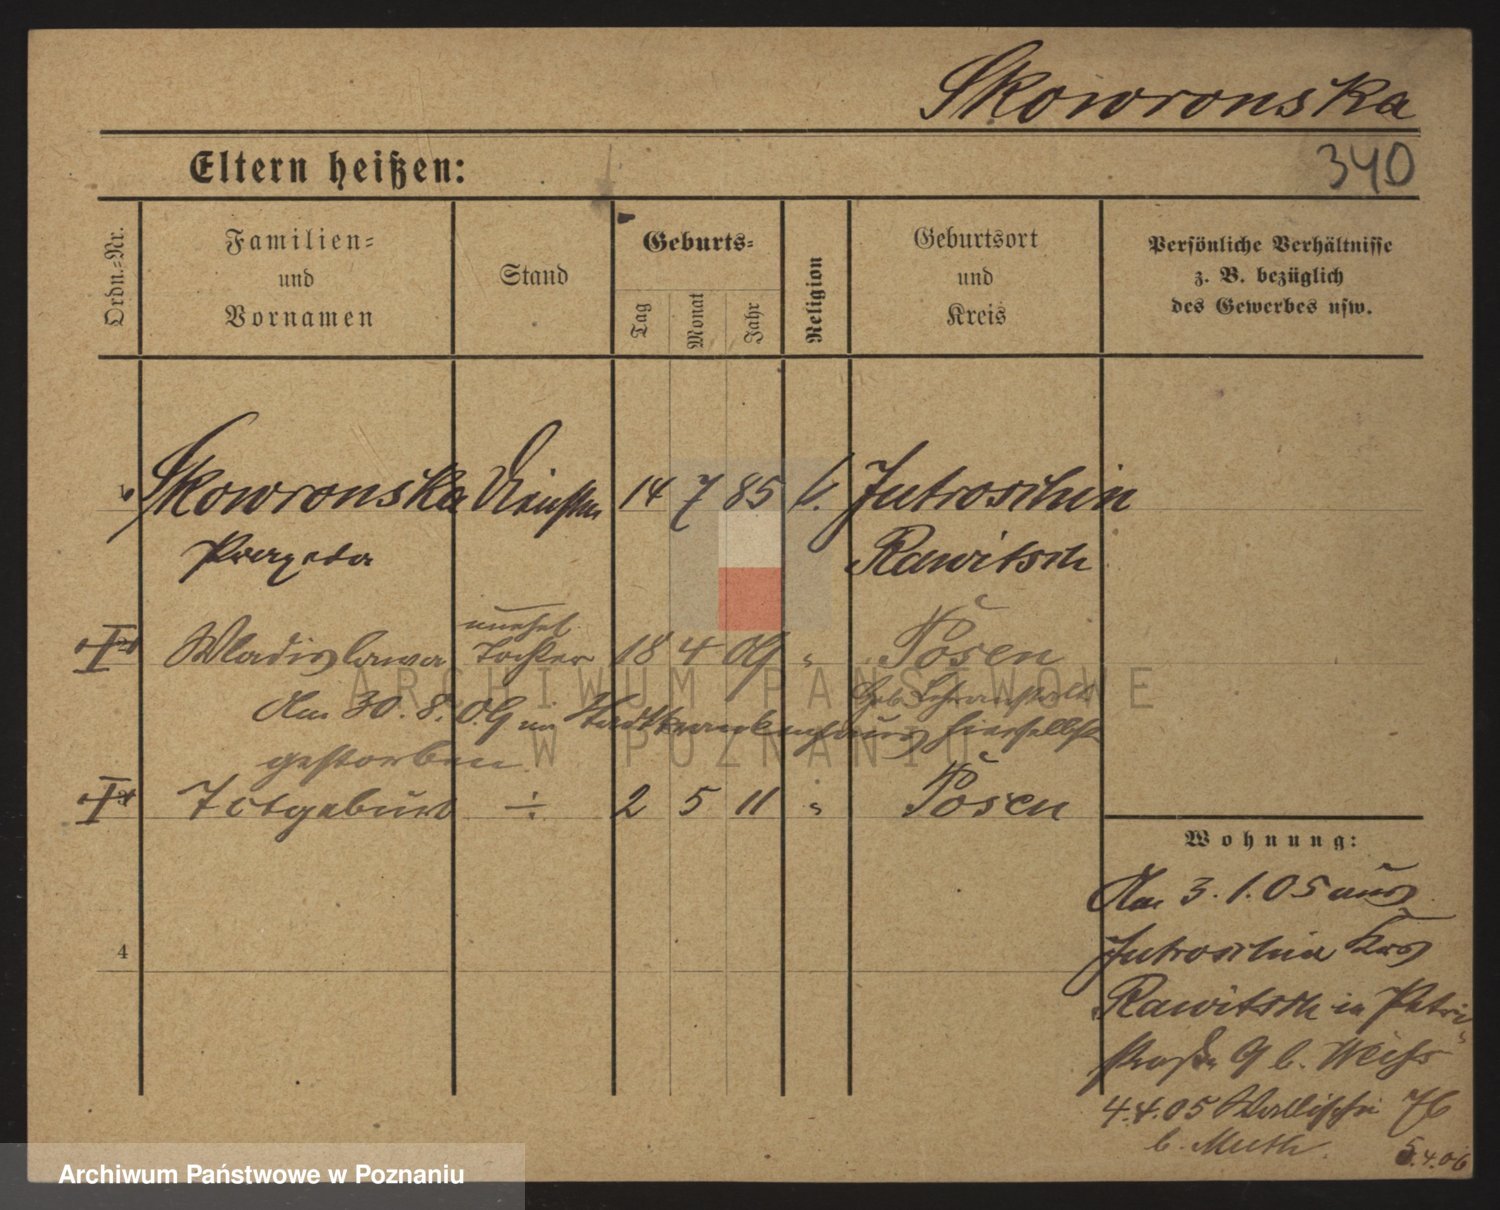 Skowronska
340
Eltern heißen:
Ordn.-Nr.
Familien-
und
Vornamen
Stand
Geburts-
Tag
Monat
Jahr
Religion
Geburtsort
und
Kreis
Persönliche Verhältnisse
z. B. bezüglich
des Gewerbes usw.
Skowronska 14 7 85 Jutroschin
Praxeda Rawitsch
unehel.
Wladislawa Tochter 18 4 09 " Posen
Am 30. 8. 09 im Stadtkrankenhaus hierselbst
gestorben
Totgeburt ÷ 2 5 11 " Posen
4
Wohnung:
Am 3. 1. 05 aus
Jutroschin Krs
Rawitsch in Petri
straße 9 b. Weiss
4. 4. 05 Wallischei 76
b. Muth.
5.4.06
ARCHIWUM PAŃSTWOWE
W POZNANIU
Archiwum Państwowe w Poznaniu